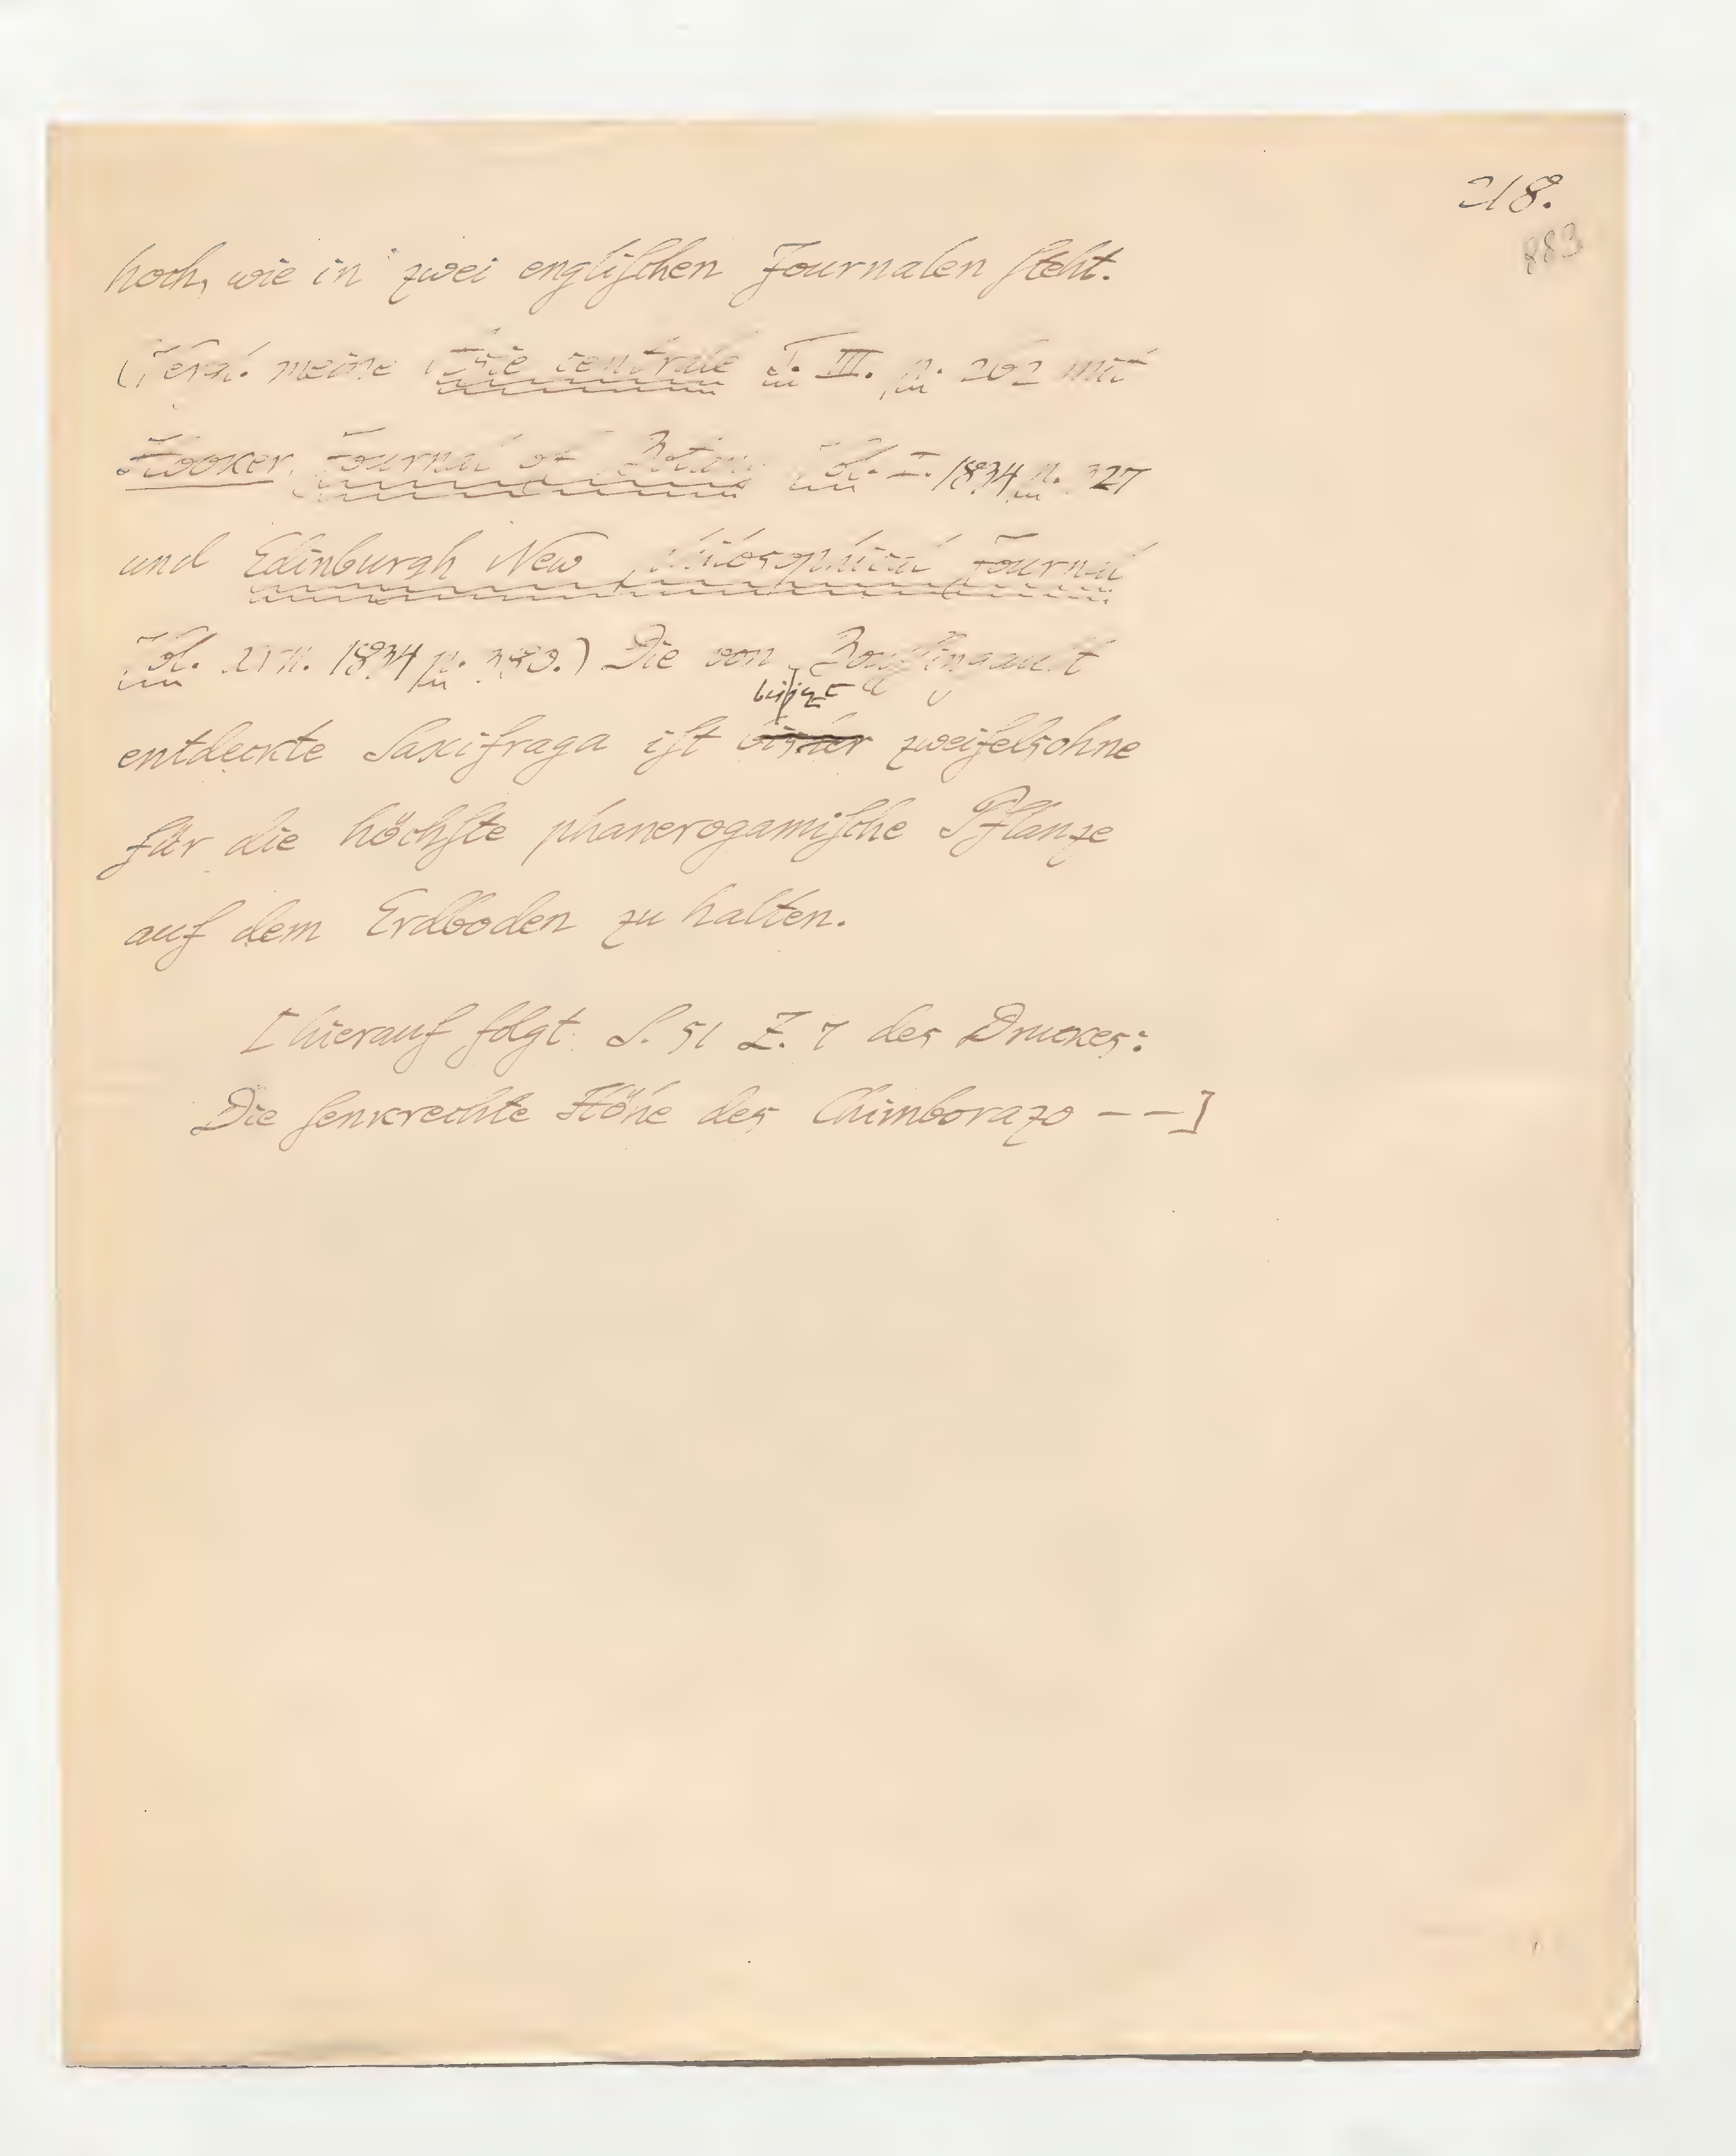 218.
883
hoch, wie in zwei engliſchen Journalen ſteht.
(Vergl. meine Asie centrale T. III. p. 262 mit
Hooker, Journal of Botany Vol. I. 1834 p. 327
und Edinburgh New Philosophical Journal
Vol. XVII. 1834 p. 380.) Die von Bouſſingault
entdeckte Saxifraga iſt bisher zweifelsohne
für die höchſte phanerogamiſche Pflanze
auf dem Erdboden zu halten.
[hierauf folgt S. 51 Z. 7 des Druckes:
Die ſenkrechte Höhe des Chimborazo – –]